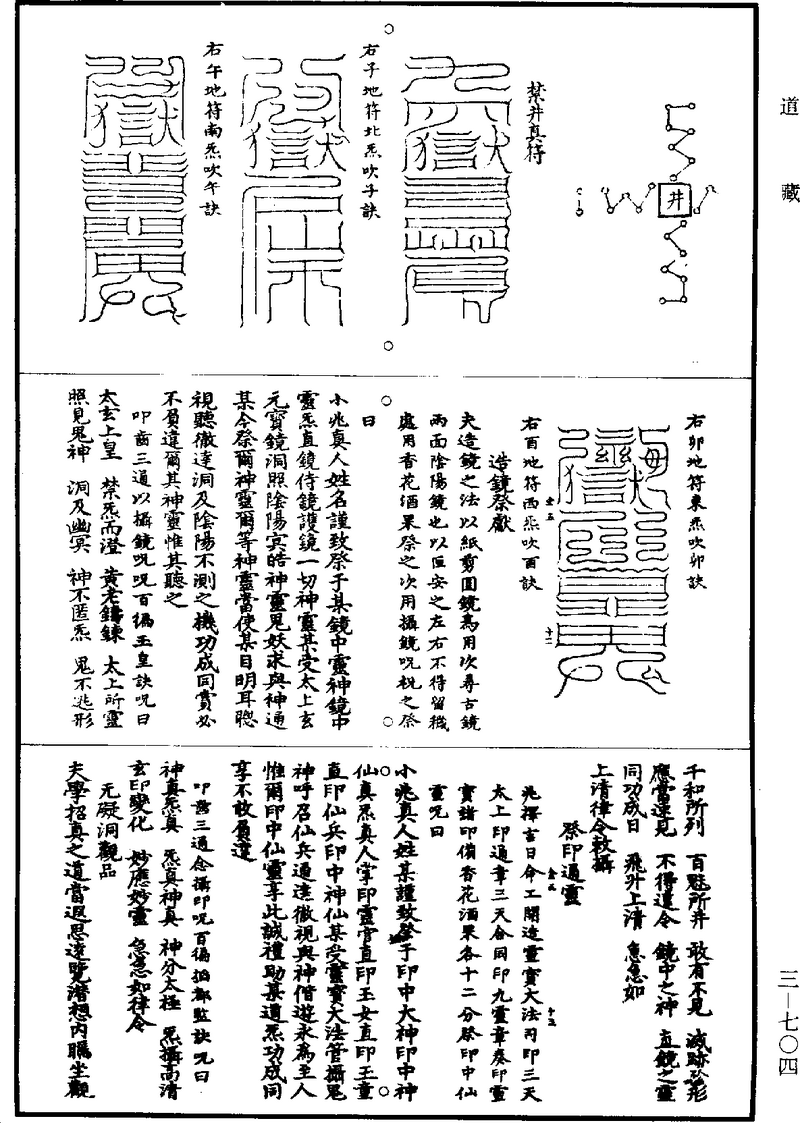 道藏
井
禁井真符
右子地符北炁吹子訣
右午地符南炁吹午訣
右卯地符東炁吹卯訣
右酉地符西炁吹酉訣
造鏡祭獻
夫造鏡之法以紙剪圓鏡為用次尋古鏡
兩面陰陽鏡也以匣安之左右不得留穢
處用香花酒果祭之次用攝鏡呪祝之祭
曰
小兆真人姓名謹致祭于某鏡中靈神鏡中
靈炁直鏡侍鏡護鏡一切神靈某受太上玄
元寶鏡洞照陰陽冥皓神靈鬼妖求與神通
某今祭爾神靈爾等神靈當使某目明耳聰
視聽徹達洞及陰陽不測之機功成同賞必
不負違爾其神靈惟其聽之
叩齒三通以攝鏡呪呪百徧玉皇訣呪曰
太玄上皇 禁炁而澄 黃老鑄鍊 太上所靈
照見鬼神 洞及幽冥 神不匿炁 鬼不逃形
千和所列 百魅所井 敢有不見 滅跡形
應當速見 不得違令 鏡中之神 直鏡之靈
同功成日 飛升上清 急急如
上清律令敕攝
祭印通靈
兆擇吉日命工開造靈寶大法司印三天
太上印通章三天合同印九靈章奏印靈
寶諸印備香花酒果各十二分祭印中仙
靈呪曰
小兆真人姓某謹致祭于印中大神印中神
仙真炁真人掌印靈官直印玉女直印玉童
直印仙兵印中神仙某受靈寶大法管攝鬼
神呼召仙兵通達徹視與神偕遊永為至人
惟爾印中仙靈享此誠禮助某道炁功成同
享不敢負違
叩齒三通念攝印呪百徧掐都監訣呪曰
神真炁真 炁真神真 神分太極 炁攝高清
玄印變化 妙應妙靈 急急如律令
无礙洞觀品
夫學招真之道當遐思遠覽潛想內矚坐觀
三—七〇四